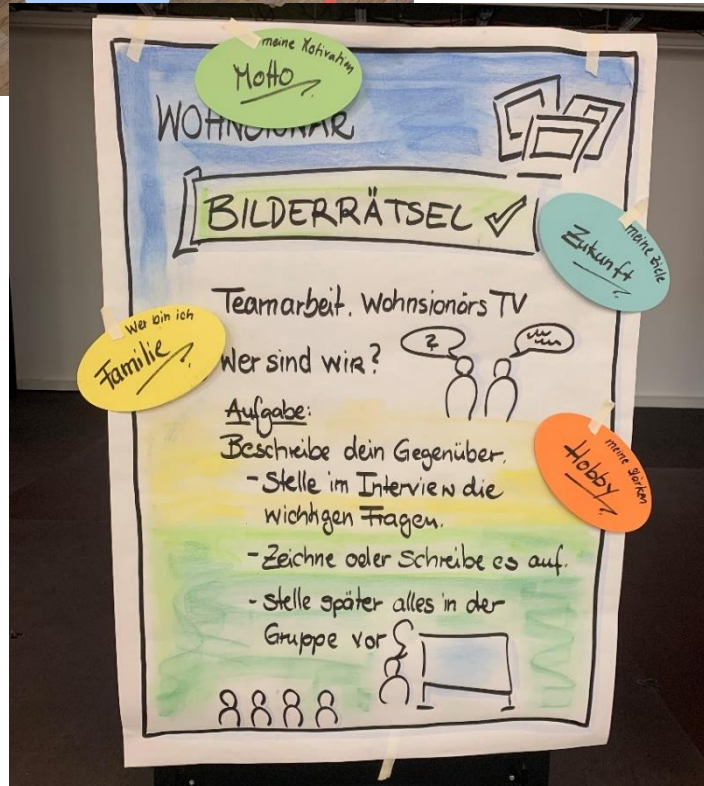 meine Motivation
Motto ?
WOHNSIONÄR
BILDERRÄTSEL ✓
Zukunft ?
meine Ziele
Teamarbeit. Wohnsionörs TV
Wer bin ich
Familie ?
Wer sind wir?
?
Aufgabe:
Beschreibe dein Gegenüber.
- Stelle im Interview die
wichtigen Fragen.
meine Stärken
Hobby ?
- Zeichne oder Schreibe es auf.
- Stelle später alles in der
Gruppe vor